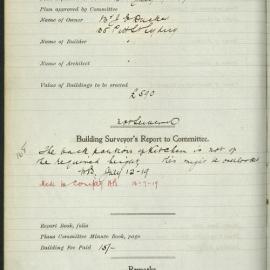 Plan approved by Committee
Name of Owner
Pitt St Sydney
Name of Builder "
Name of Architect "
Value of Buildings to be erected
£500
Building Surveyor's Report to Committee.
The back portion of kitchen is not of
the required height. This might be overlooked
July 12-19
Report Book, folio
Plans Committee Minute Book, page
Building Fee Paid 15/-
Remarks